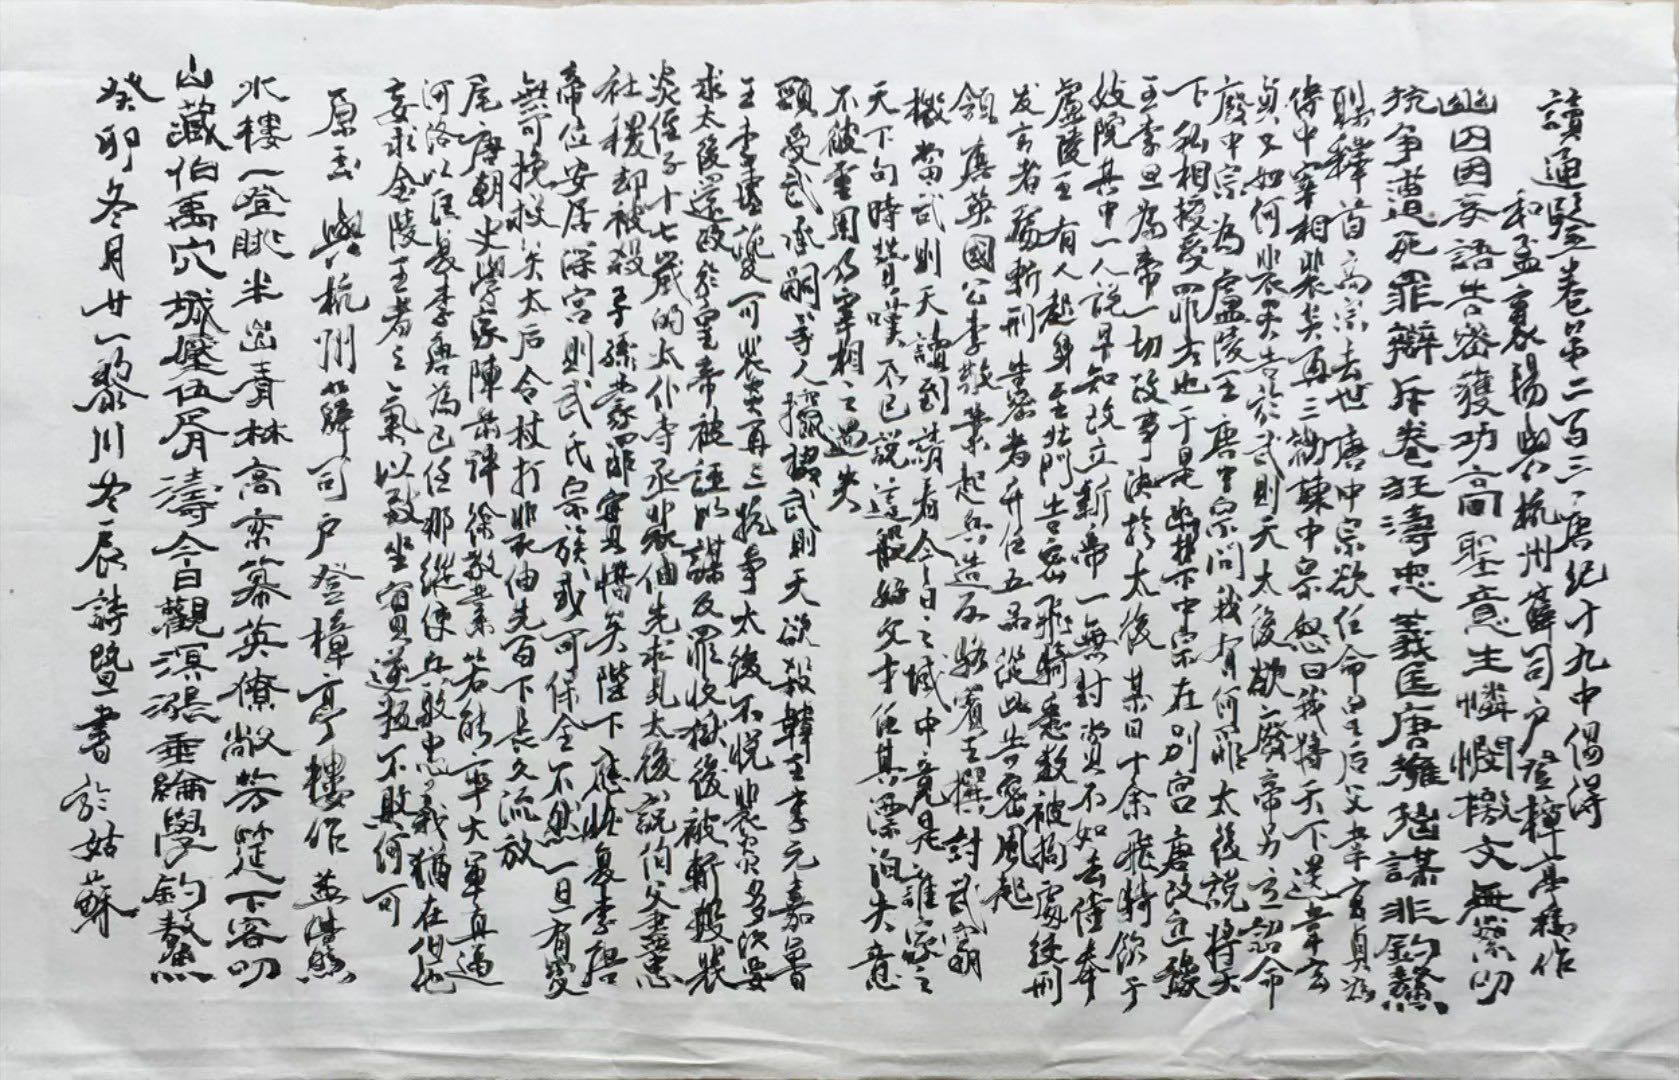 讀通鑒卷第二百三唐紀十九中偶得
和孟襄陽與杭州薛司户登樟亭樓作
幽囚因妄語告密獲功高聖意生憐憫檄文無禦叨
抗争遭死罪辯斥卷狂濤忠義匡唐擁謀非釣鰲
聊釋首高宗去世唐中宗欲任命皇后父韋玄貞為
侍中宰相裴炎再三勸諫中宗怒曰我將天下送韋玄
貞又如何裴炎告於武則天太後欲廢帝另立詔命
廢中宗為盧陵王唐中宗問我有何罪太後説將天
下私相授受罪大也于是幽禁中宗在别宫唐改立豫
王李旦為帝一切政事決於太後某日十余飛騎飲于
妓院其中一人説早知改立新帝一無封賞不如去侍奉
盧陵王有人起身至北門告密飛騎悉數被拘處絞刑
发言者斬刑告密者升任五品從此告密風起
領唐英國公李敬業起兵造反駱賓王撰討武曌
檄當武則天讀到請看今日之域中竟是誰家之
天下句時贊嘆不已説這般好文才任其漂泊失意
不被重用乃宰相之過失
顕受武承嗣等人攛掇武則天欲殺韓王李元嘉魯
王李靈夔可裴炎再三抗争太後不悅裴炎多次要
求太後還政於皇帝被誣以謀反罪收獄後被斬殺裴
炎侄子十七歲的太仆寺丞裴伷先求見太後説伯父盡忠
社稷却被殺子孫蒙罪實是惜矣陛下應恢复李唐
帝位安居深宫則武氏宗族或可保全不然一旦有变
無可挽救矣太后令杖打裴伷先百下長久流放
尾唐朝史學家陳岳評徐敬業若能率大軍直逼
河洛以匡复李唐為己任那縱使兵敗忠義猶在但他
妄求金陵王者之氣以致坐實逆叛不敗何可
原玉與杭州薛司户登樟亭樓作孟浩然
水樓一登眺半出青林高帟幕英僚敞芳筵下客叨
山藏伯禹穴城壓伍胥濤今日觀溟漲垂綸學釣鰲
癸卯冬月廿一黎川老辰詩暨書於姑蘇